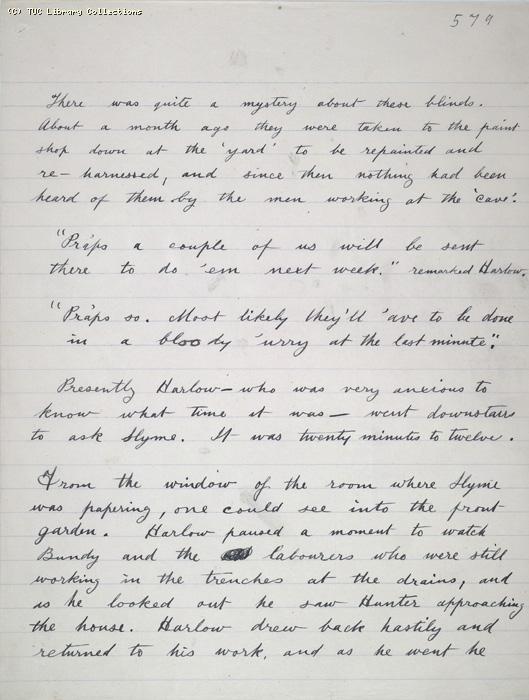 (C) TUC Library Collections
579
There was quite a mystery about these blinds.
About a month ago they were taken to the paint
shop down at the 'yard' to be repainted and
re-harnessed, and since then nothing had been
heard of them by the men working at the 'cave'.
"Prá'ps a couple of us will be sent
there to do 'em next week." remarked Harlow.
"Prá'ps so. Most likely they'll 'ave to be done
in a bloody 'urry at the last minute".
Presently Harlow – who was very anxious to
know what time it was – went downstairs
to ask Slyme. It was twenty minutes to twelve.
From the window of the room where Slyme
was papering, one could see into the front
garden. Harlow paused a moment to watch
Bundy and the labourers who were still
working in the trenches at the drains, and
as he looked out he saw Hunter approaching
the house. Harlow drew back hastily and
returned to his work, and as he went he